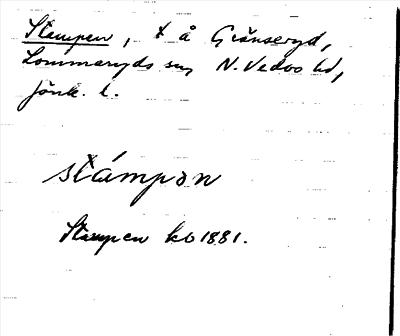 Stampen, t å Gränseryd,
Lommaryds sn, N. Vedbo hd,
Jönk. l.
stámpən
Stampen kb 1881.